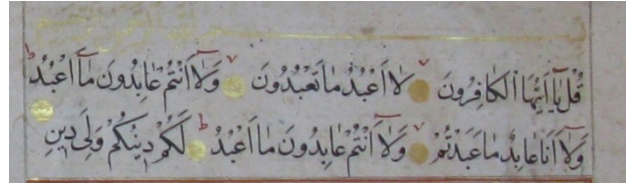 قُلْ يَا اَيُّهَا الْكَافِرُونَ لَا اَعْبُدُ مَا تَعْبُدُونَ وَلَا اَنْتُمْ عَابِدُونَ مَا اَعْبُدُ
وَلَا اَنَا عَابِدٌ مَا عَبَدْتُمْ وَلَا اَنْتُمْ عَابِدُونَ مَا اَعْبُدُ لَكُمْ دِينُكُمْ وَلِيَ دِينِ